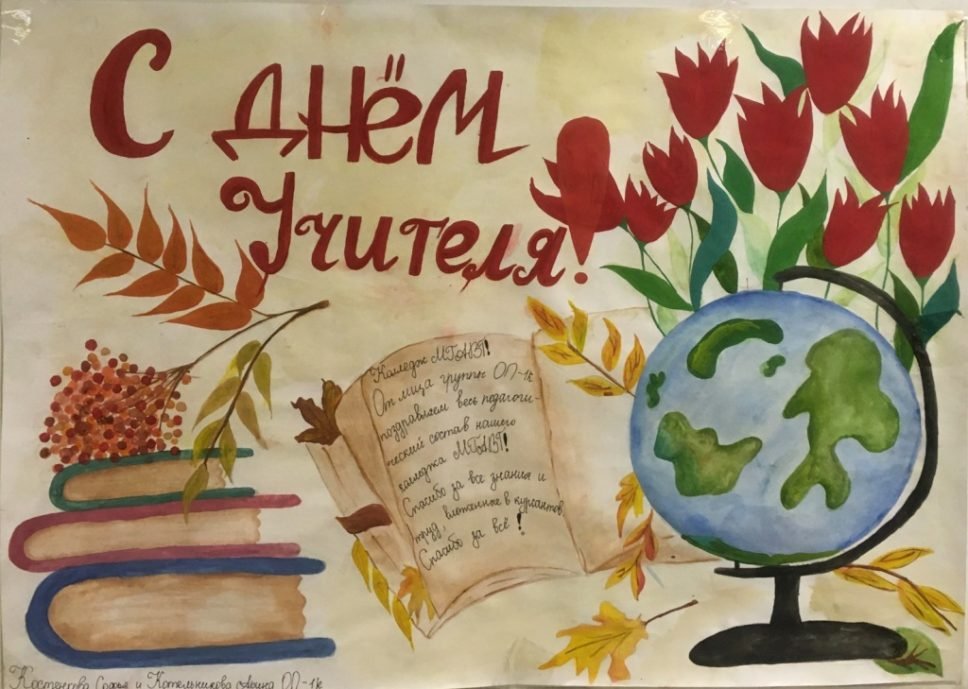 С ДНЁМ
Учителя!
Колледж МГАВТ!
От лица группы ОП-1к
поздравляем весь педагоги-
ческий состав нашего
колледжа МГАВТ!
Спасибо за все знания и
труд, вложенные в курсантов.
Спасибо за всё!
и Котельникова ОП-1к